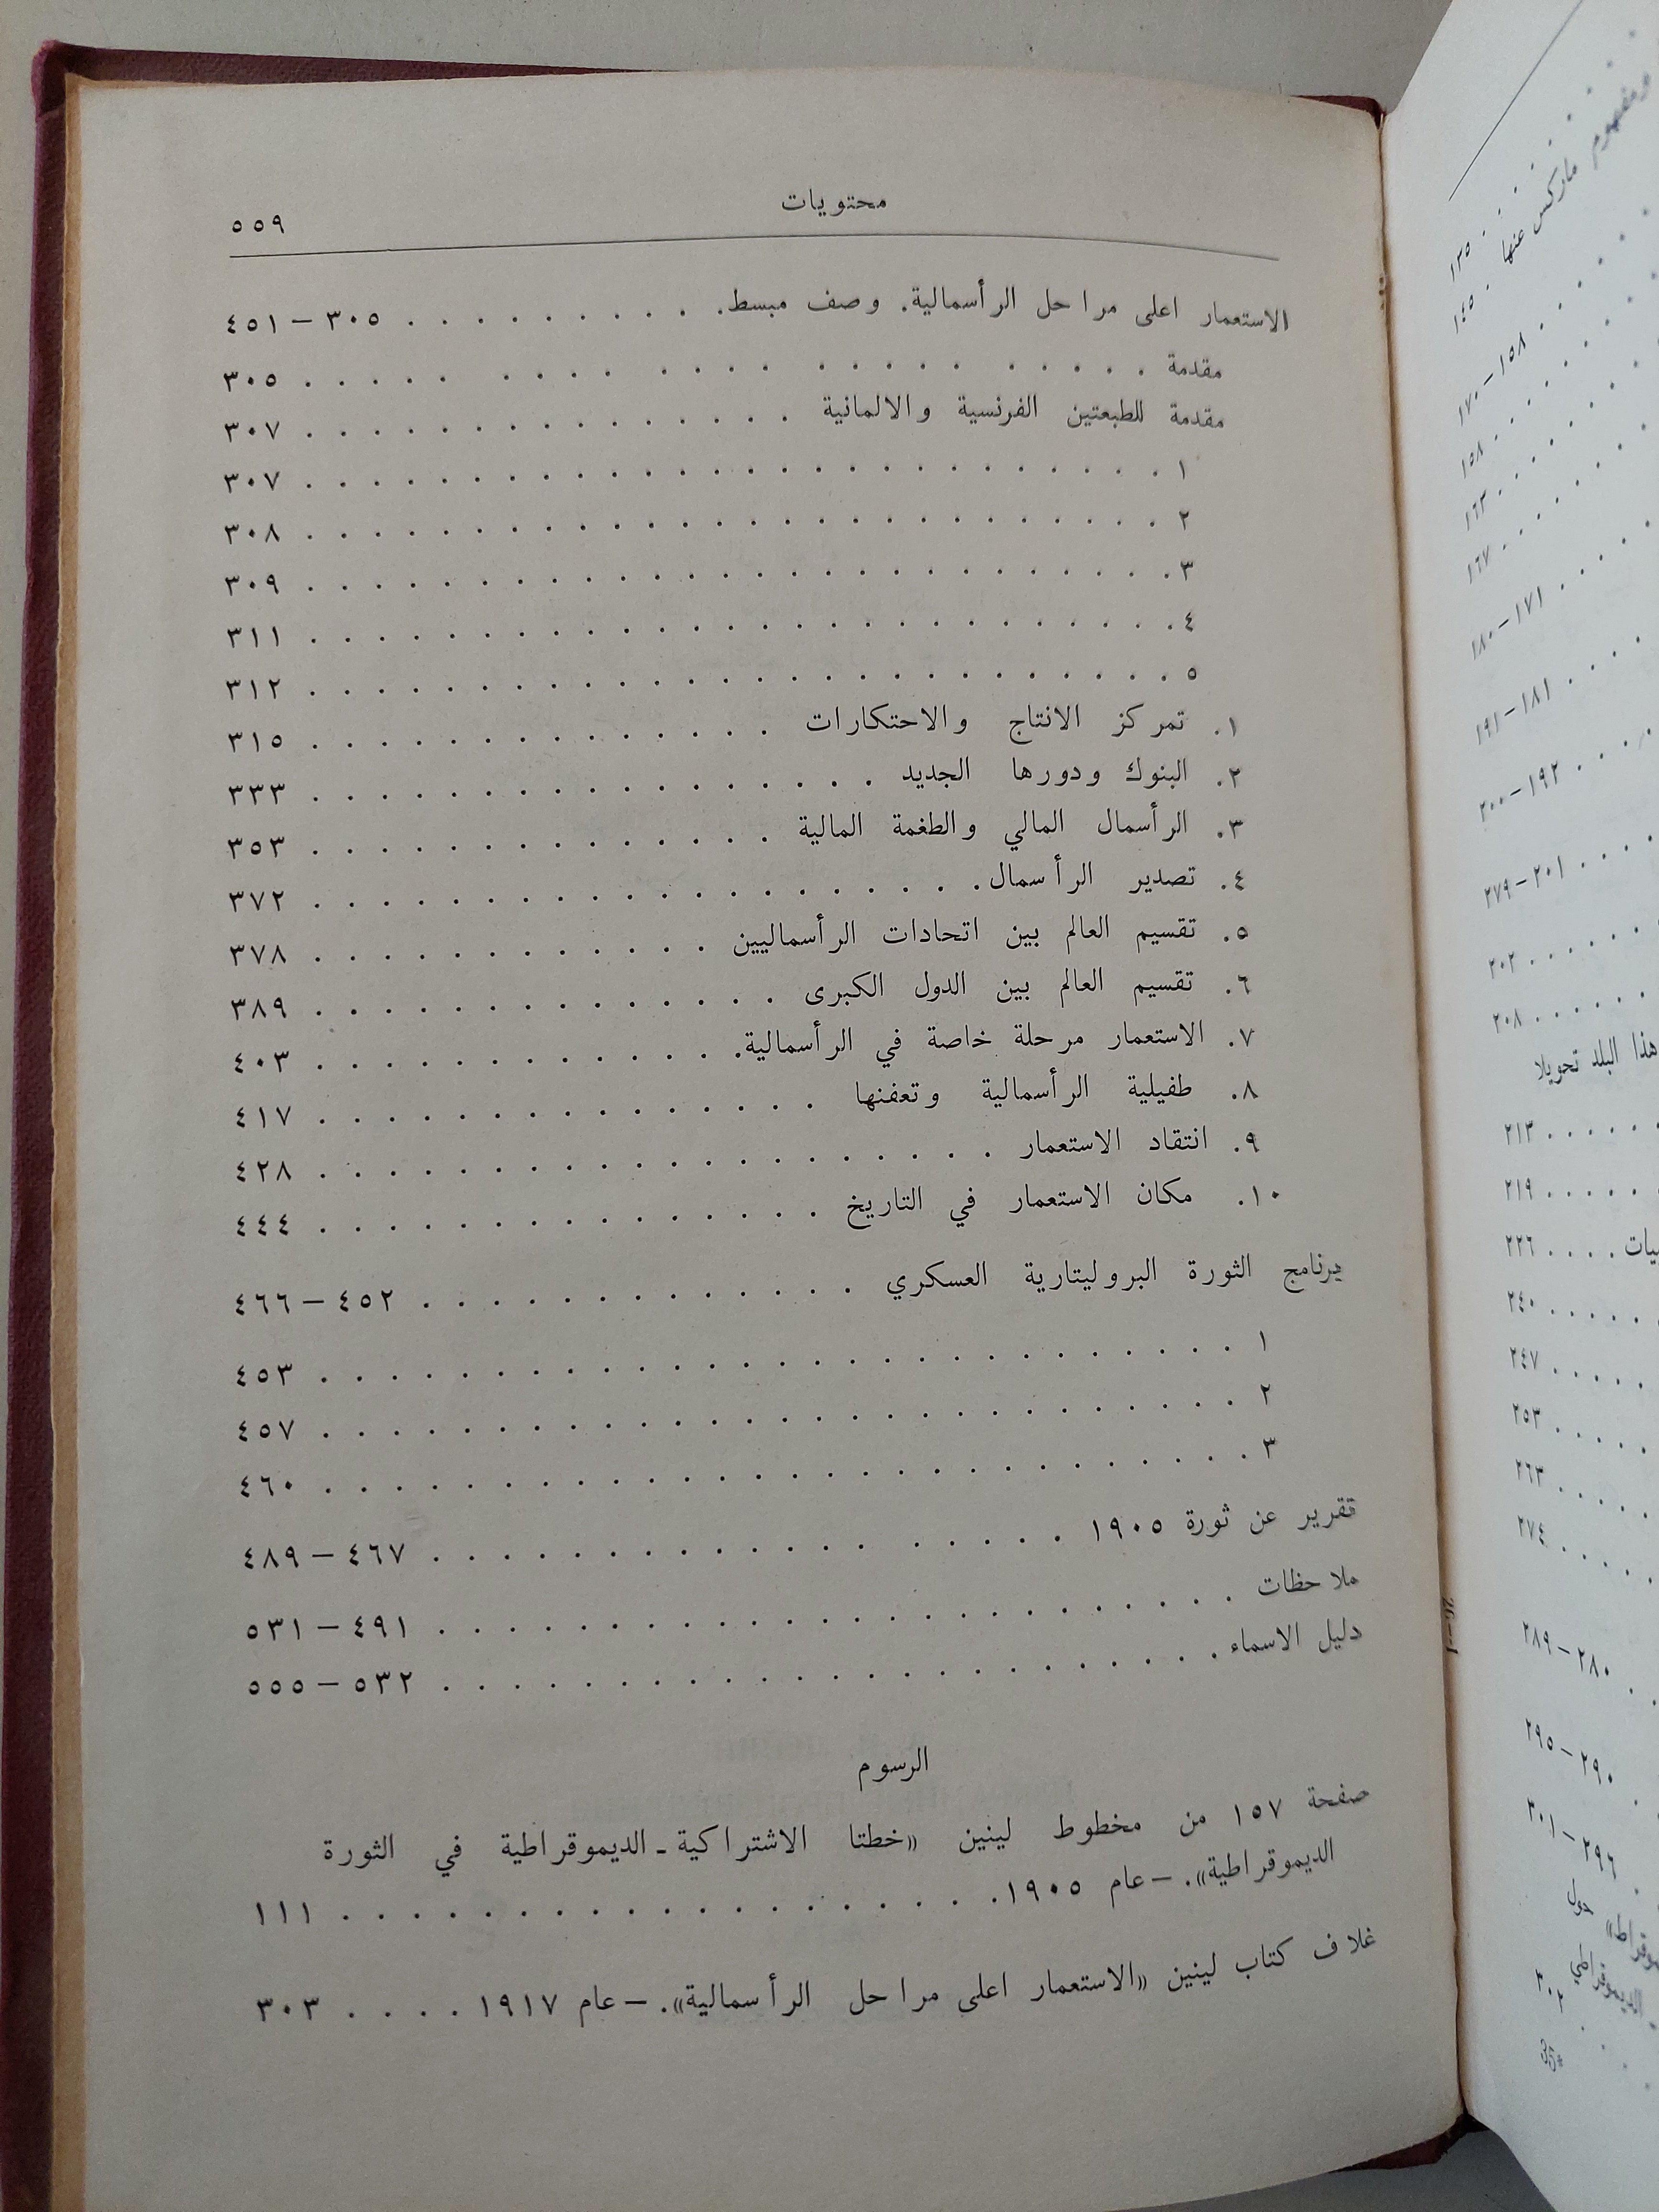 محتويات
٥٥٩
الاستعمار اعلى مراحل الرأسمالية. وصف مبسط. . . . . . . . . . ٣٠٥ – ٤٥١
مقدمة . . . . . . . . . . . . . . . . . . . . . . . ٣٠٥
مقدمة للطبعتين الفرنسية والالمانية . . . . . . . . . . . . . . . ٣٠٧
١ . . . . . . . . . . . . . . . . . . . . . . . . . ٣٠٧
٢ . . . . . . . . . . . . . . . . . . . . . . . . . ٣٠٨
٣ . . . . . . . . . . . . . . . . . . . . . . . . . ٣٠٩
٤ . . . . . . . . . . . . . . . . . . . . . . . . . ٣١١
٥ . . . . . . . . . . . . . . . . . . . . . . . . . ٣١٢
١. تمركز الانتاج والاحتكارات . . . . . . . . . . . . . . ٣١٥
٢. البنوك ودورها الجديد . . . . . . . . . . . . . . . . . ٣٣٣
٣. الرأسمال المالي والطغمة المالية . . . . . . . . . . . . . . ٣٥٣
٤. تصدير الرأسمال . . . . . . . . . . . . . . . . . . . . ٣٧٢
٥. تقسيم العالم بين اتحادات الرأسماليين . . . . . . . . . . . . ٣٧٨
٦. تقسيم العالم بين الدول الكبرى . . . . . . . . . . . . . . ٣٨٩
٧. الاستعمار مرحلة خاصة في الرأسمالية. . . . . . . . . . . . . ٤٠٣
٨. طفيلية الرأسمالية وتعفنها . . . . . . . . . . . . . . . ٤١٧
٩. انتقاد الاستعمار . . . . . . . . . . . . . . . . . . . . ٤٢٨
١٠. مكان الاستعمار في التاريخ . . . . . . . . . . . . . . . . ٤٤٤
برنامج الثورة البروليتارية العسكري . . . . . . . . . . . . . ٤٥٢ – ٤٦٦
١ . . . . . . . . . . . . . . . . . . . . . . . . . . ٤٥٣
٢ . . . . . . . . . . . . . . . . . . . . . . . . . . ٤٥٧
٣ . . . . . . . . . . . . . . . . . . . . . . . . . . ٤٦٠
تقرير عن ثورة ١٩٠٥ . . . . . . . . . . . . . . . . . . ٤٦٧ – ٤٨٩
ملاحظات . . . . . . . . . . . . . . . . . . . . . . . ٤٩١ – ٥٣١
دليل الاسماء . . . . . . . . . . . . . . . . . . . . . . ٥٣٢ – ٥٥٥
الرسوم
صفحة ١٥٧ من مخطوط لينين «خطتا الاشتراكية ـ الديموقراطية في الثورة
الديموقراطية». – عام ١٩٠٥. . . . . . . . . . . . . . . . . . . ١١١
غلاف كتاب لينين «الاستعمار اعلى مراحل الرأسمالية». – عام ١٩١٧ . . . . ٣٠٣
ومفهوم ماركس عنها
١٣٥
١٤٥
١٥٨ – ١٧٠
١٥٨
١٦٣
١٦٧
١٧١ – ١٨٠
١٨١ – ١٩١
١٩٢ – ٢٠٠
٢٠١ – ٢٧٩
٢٠٢
٢٠٨
هذا البلد تحويلا
٢١٣
٢١٩
٢٢٦
٢٤٠
٢٤٧
٢٥٣
٢٦٣
٢٧٤
٢٨٠ – ٢٨٩
٢٩٠ – ٢٩٥
٢٩٦ – ٣٠١
حول
الديموقراطي
٣٠٢
35*